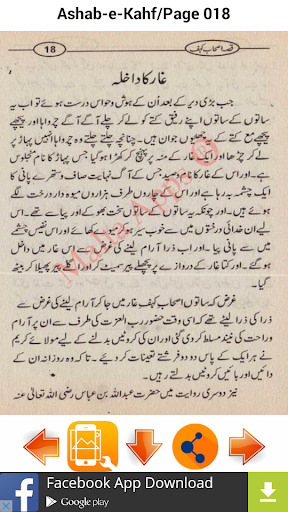 Ashab-e-Kahf/Page 018
18
قصہ اصحاب کہف
غار کا داخلہ
جب بڑی دیر کے بعد اُن کے ہوش و حواس درست ہوئے تو اب یہ
ساتوں کے ساتوں اپنے رفیق کتے کو لے کر چلے آگے آگے چرواہا اور پیچھے
پیچھے مع کتے کے یہ چھیوں جوان ہیں۔ چنانچہ چلتے چلتے وہ چرواہا انہیں پہاڑ پر
لے کر چڑھا اور ایک غار کے منہ پر پہنچ کر کھڑا ہو گیا جس پہاڑ کا نام
ہے۔ اور اس کے غار کا نام وصید جس کے آگے نہایت صاف و ستھرے پانی کا
ایک چشمہ بہ رہا ہے اور اس کے چاروں طرف ہزاروں میوہ دار درخت لگے
ہوئے ہیں۔ اور چونکہ یہ ساتوں کے ساتوں سخت بھوکے اور پیاسے تھے۔ اس
لیے ان خدائی درختوں میں سے خوب سیر ہو کر میوے کھائے اور اس نفیس چشمے
میں سے پانی پیا۔ اور اب ذرا آرام لینے کی غرض سے اس غار میں داخل
ہو گئے۔ اور کتا غار کے دروازے پر پچھلے پیر سمیٹ کر اور اگلے پیر پھیلا کر بیٹھ
گیا۔
غرض کہ ساتوں اصحاب کہف غار میں جا کر آرام لینے کی غرض سے
ذرا کی ذرا لیٹے تھے کہ اسی وقت حضور رب العزت کی طرف سے ان پر آرام
و راحت کی نیند مسلط کر دی گئی اور ان کی کروٹیں بدلنے کے لیے مولائے کریم
نے ہر ایک کے پاس دو دو فرشتے تعینات کر دیئے۔ تاکہ وہ روزانہ ان کے
دائیں اور بائیں کروٹیں بدلتے رہیں۔
نیز دوسری روایت میں حضرت عبداللہ بن عباس رضی اللہ تعالیٰ عنہ
Malia Apps
Facebook App Download
Google play